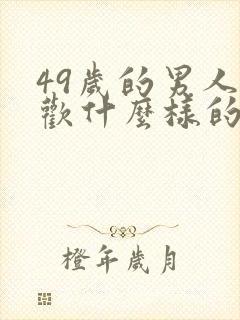 49歲的男人
歡什麼樣的
橙年歲月